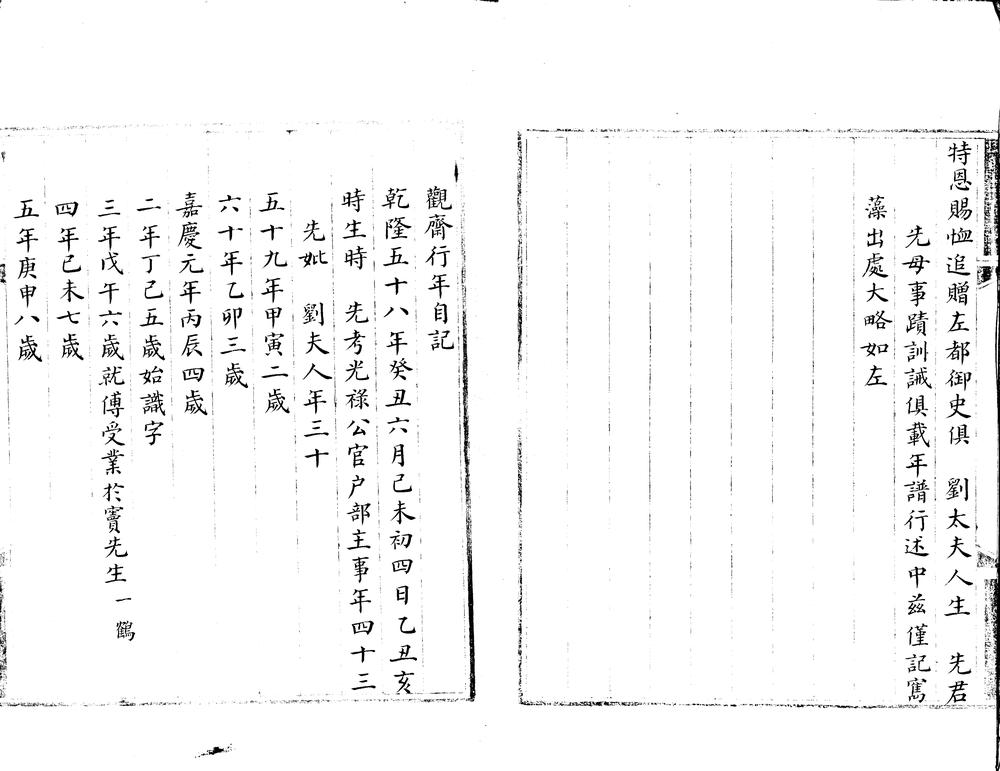 特恩賜恤追贈左都御史俱　劉太夫人生　先君
先母事蹟訓誡俱載年譜行述中茲僅記寯
藻出處大略如左
觀齋行年自記
乾隆五十八年癸丑六月己未初四日乙丑亥
時生時　先考光祿公官户部主事年四十三
先妣　劉夫人年三十
五十九年甲寅二歲
六十年乙卯三歲
嘉慶元年丙辰四歲
二年丁巳五歲始識字
三年戊午六歲就傅受業於竇先生一鶴
四年己未七歲
五年庚申八歲